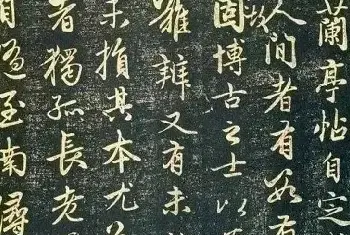 蘭亭帖自定
人間者有數有
固故博古之士以
難辨又有未
未損其本尤
者獨孤長老
隨至南潯